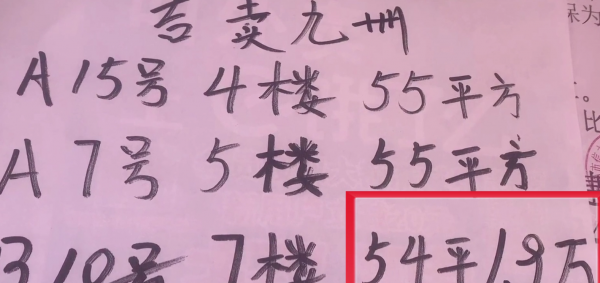 吉卖九州
A15号 4楼 55平方
A7号 5楼 55平方
B10号 7楼 54平1.9万
保为
比